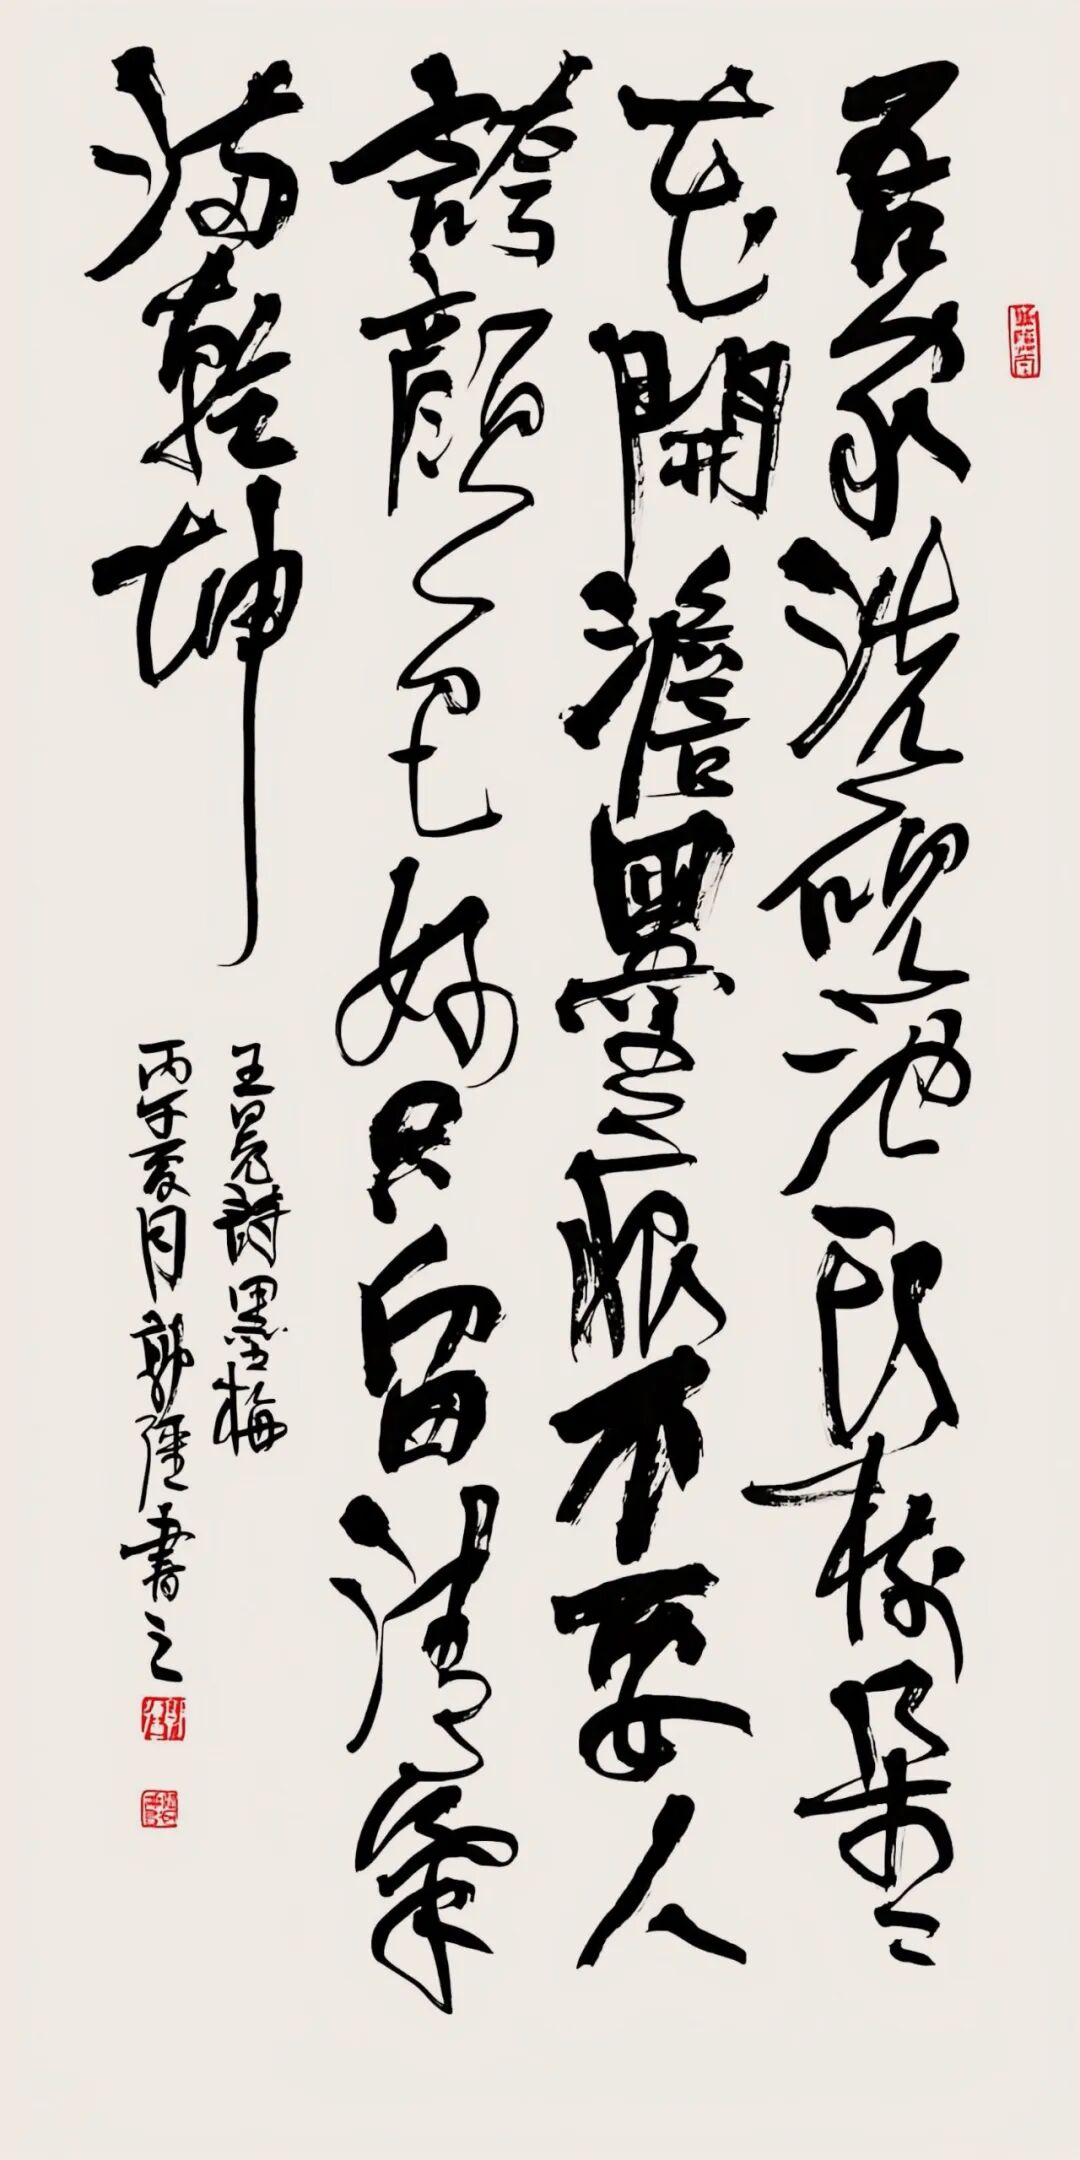 吾家洗硯池頭樹朵々
花開澹墨痕不要人
誇顏色好只留清氣
滿乾坤
王冕詩墨梅
丙午夏月郭書之